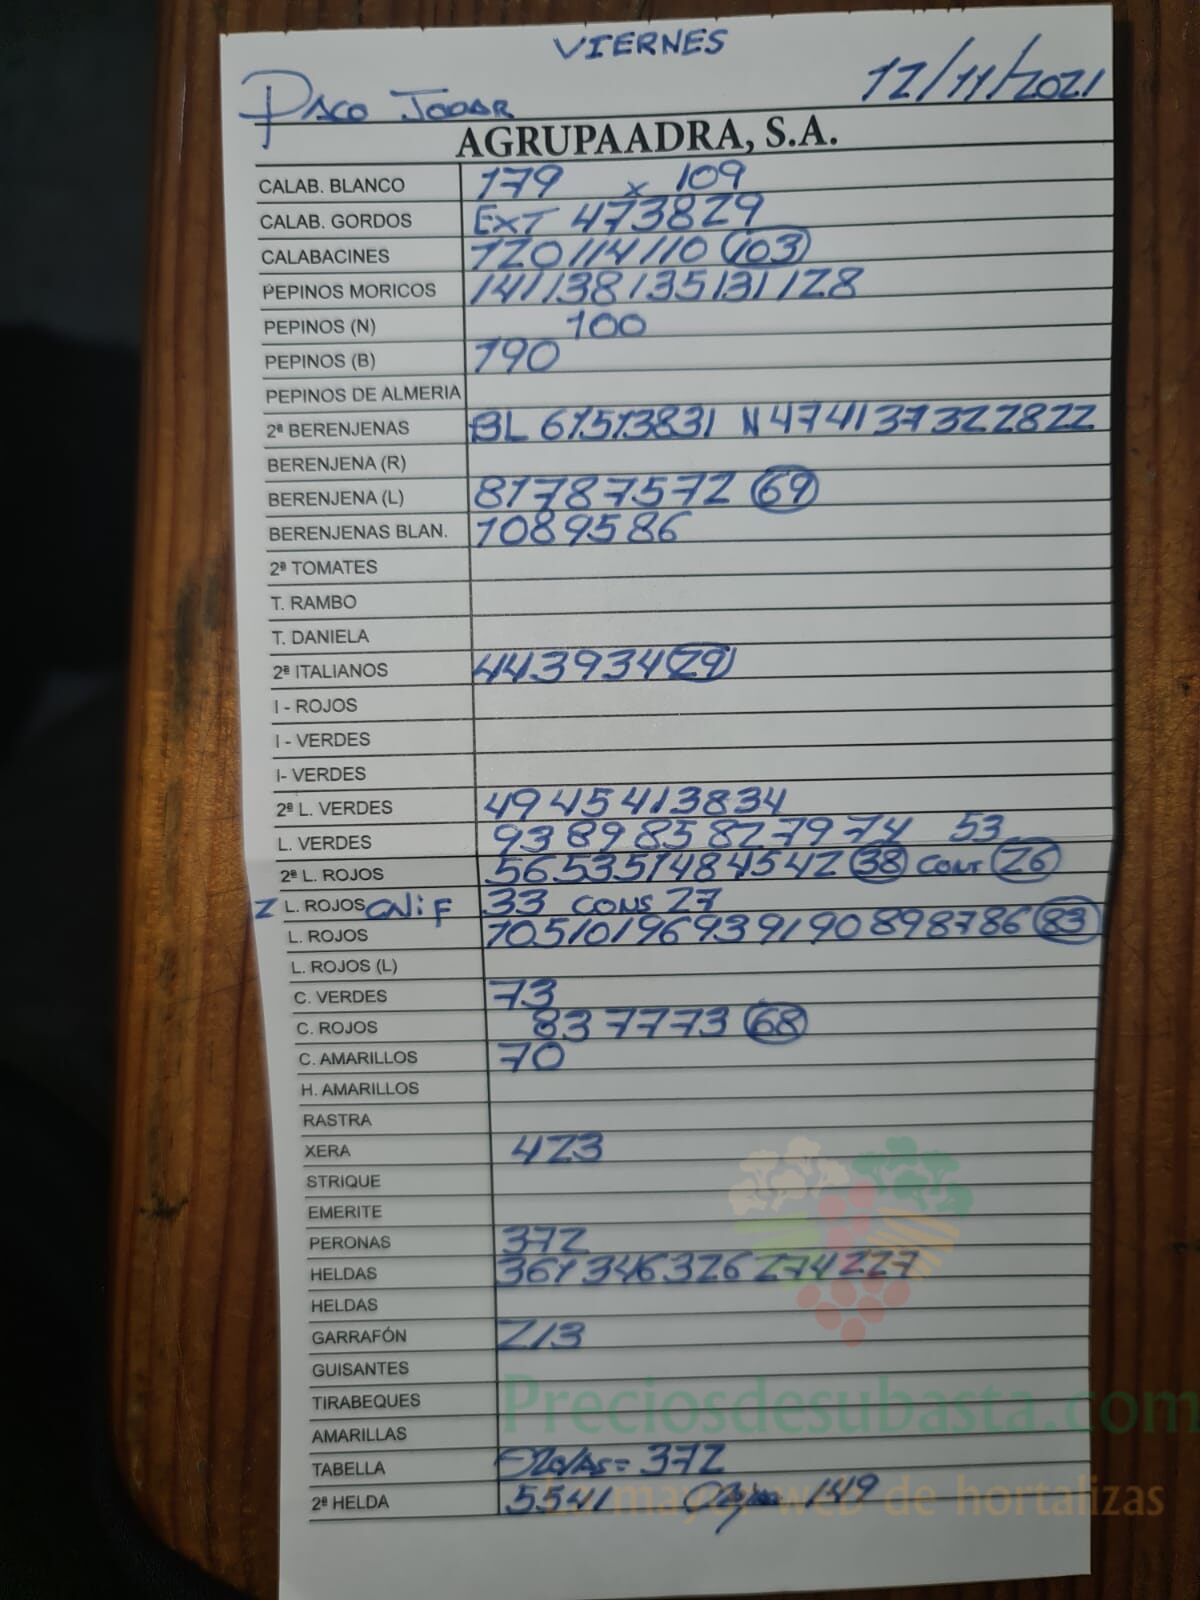 VIERNES
PACO JODAR 12/11/2021
AGRUPAADRA, S.A.
CALAB. BLANCO 179 x 109
CALAB. GORDOS EXT 473829
CALABACINES 120/114/110 (103)
PEPINOS MORICOS 141/138/135/131/128
PEPINOS (N) 100
PEPINOS (B) 190
PEPINOS DE ALMERIA
2ª BERENJENAS BL 61513831 N 474137322822
BERENJENA (R)
BERENJENA (L) 81787572 (69)
BERENJENAS BLAN. 1089586
2ª TOMATES
T. RAMBO
T. DANIELA
2ª ITALIANOS 443934 (29)
I - ROJOS
I - VERDES
I- VERDES
2ª L. VERDES 4945413834
L. VERDES 938985827974 53
2ª L. ROJOS 565351484542 (38) CONT (26)
2 L. ROJOS CALIF 33 CONS 27
L. ROJOS 10510196939190898786 (83)
L. ROJOS (L)
C. VERDES 73
C. ROJOS 837773 (68)
C. AMARILLOS 70
H. AMARILLOS
RASTRA
XERA 423
STRIQUE
EMERITE
PERONAS 372
HELDAS 361346326274227
HELDAS
GARRAFÓN 213
GUISANTES
TIRABEQUES
AMARILLAS
TABELLA = 372
2ª HELDA 5541 149
Preciosdesubasta.com
La mayor web de hortalizas